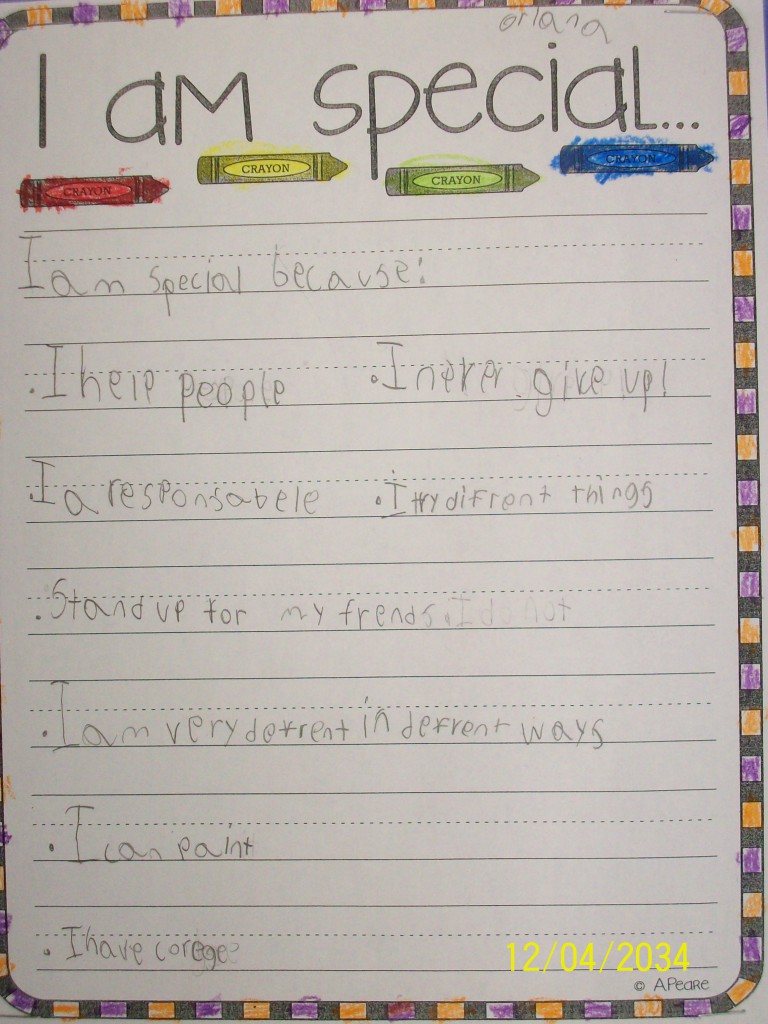 oriana
I am special...
CRAYON CRAYON CRAYON CRAYON
I am special because:
. I help people . I never give up!
. I a responsabele . I try difrent things
. Stand up for my frends. I do not
. I am very defrent in defrent ways
. I can paint
. I have corege
12/04/2034
© APeare